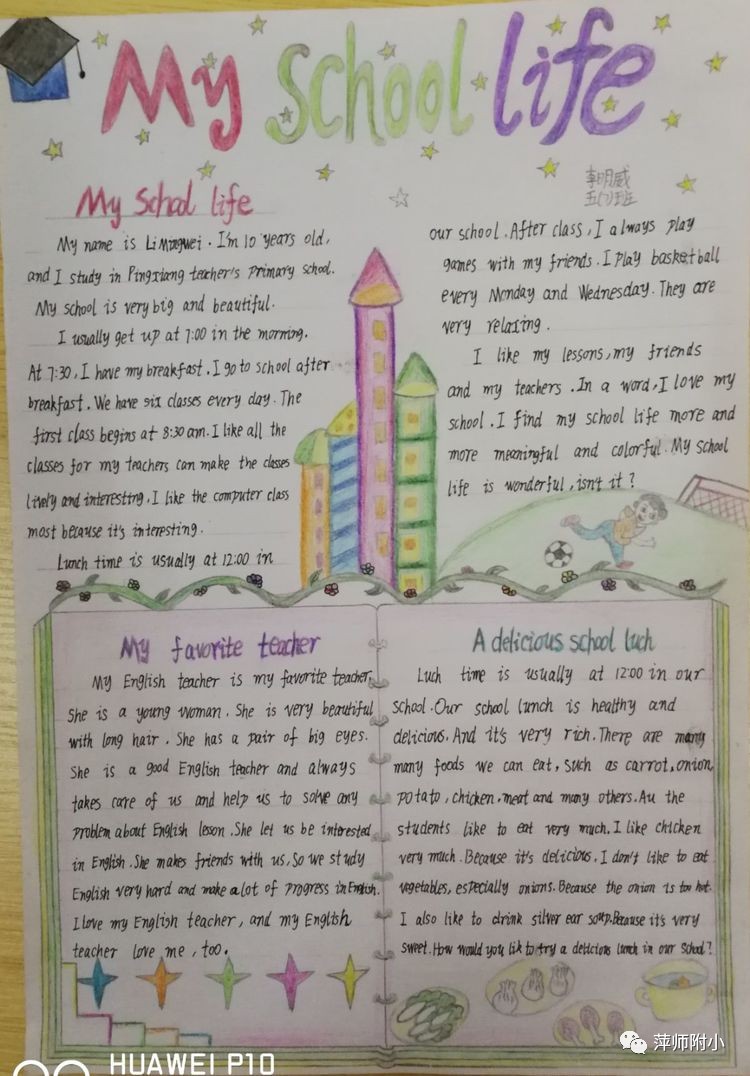 My School life
李明威
五(7)班
My School life
My name is LiMingwei. I'm 10 years old,
and I study in Pingxiang teacher's primary school.
My school is very big and beautiful.
I usually get up at 7:00 in the morning.
At 7:30, I have my breakfast. I go to school after
breakfast. We have six classes every day. The
first class begins at 8:30 am. I like all the
classes for my teachers can make the classes
lively and interesting. I like the computer class
most because it's interesting.
Lunch time is usually at 12:00 in
our school. After class, I always play
games with my friends. I play basketball
every Monday and Wednesday. They are
very relaxing.
I like my lessons, my friends
and my teachers. In a word, I love my
school. I find my school life more and
more meaningful and colorful. My School
life is wonderful, isn't it?
My favorite teacher
My English teacher is my favorite teacher.
She is a young woman. She is very beautiful
with long hair. She has a pair of big eyes.
She is a good English teacher and always
takes care of us and help us to solve any
problem about English lesson. She let us be interested
in English. She makes friends with us, So we study
English very hard and make a lot of progress in English.
I love my English teacher, and my English
teacher love me, too.
A delicious school luch
Luch time is usually at 12:00 in our
school. Our school lunch is healthy and
delicious. And it's very rich. There are many
many foods we can eat, such as carrot, onion,
potato, chicken, meat and many others. Au the
students like to eat very much. I like chicken
very much. Because it's delicious. I don't like to eat
vegetables, especially onions. Because the onion is too hot.
I also like to drink silver ear soup. Because it's very
sweet. How would you lik to try a delicious lunch in our School?
萍师附小
HUAWEI P10